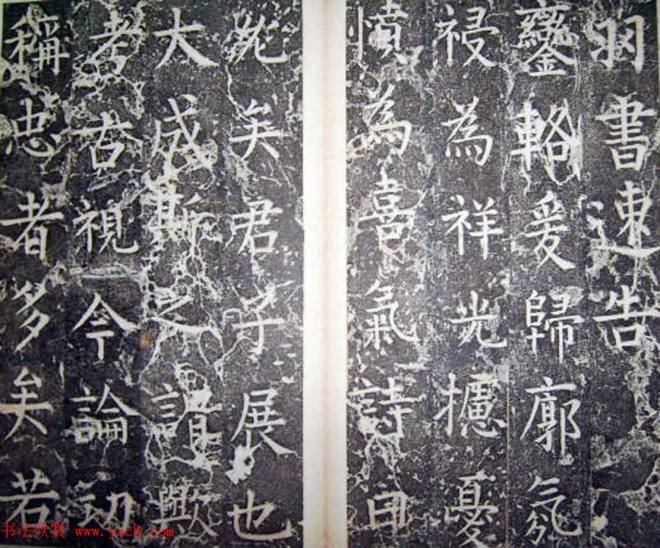 羽書速告
鑾輅爰歸廓氛
祲為祥光攄憂
憤為喜氣詩曰
允矣君子展也
大成斯之謂歟
考古視今論功
稱忠者多矣若
书法欣赏 www.yac8.com